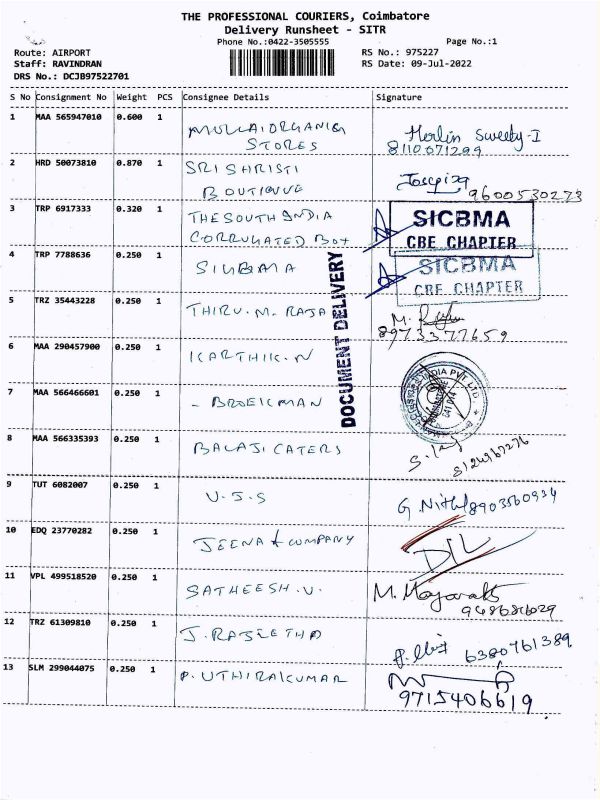 THE PROFESSIONAL COURIERS, Coimbatore
Delivery Runsheet - SITR
Phone No.:0422-3505555
Page No.:1
Route: AIRPORT
RS No.: 975227
Staff: RAVINDRAN
RS Date: 09-Jul-2022
DRS No.: DCJB97522701
S No Consignment No Weight PCS Consignee Details Signature
1 MAA 565947010 0.600 1 MULLAI ORGANIC
STORES
Herlin Sweety-I
8110071299
2 HRD 50073810 0.870 1 SRI SHRISTI
BOUTIQUE
9600530273
3 TRP 6917333 0.320 1 THE SOUTH INDIA
CORRUGATED BOX
SICBMA
CBE CHAPTER
4 TRP 7788636 0.250 1 SICBMA
SICBMA
CBE CHAPTER
DOCUMENT DELIVERY
5 TRZ 35443228 0.250 1 THIRU.M.RAJA
M.
8973377659
6 MAA 290457900 0.250 1 KARTHIK.N
7 MAA 566466601 0.250 1 - BROEKMAN
INDIA PVT LTD
8 MAA 566335393 0.250 1 BALAJI CATERS
8124967276
9 TUT 6082007 0.250 1 V.J.S
8903560934
10 EDQ 23770282 0.250 1 JEENA & COMPANY
D/L
11 VPL 499518520 0.250 1 SATHEESH.V.
M.
12 TRZ 61309810 0.250 1
6380761389
13 SLM 299044075 0.250 1 P.UTHIRAKUMAR
9715406619